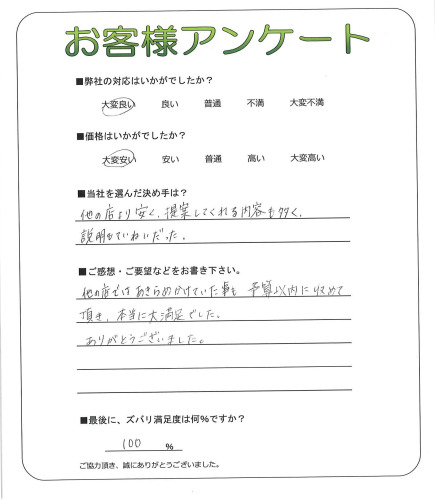 お客様アンケート
■弊社の対応はいかがでしたか？
大変良い 良い 普通 不満 大変不満
■価格はいかがでしたか？
大変安い 安い 普通 高い 大変高い
■当社を選んだ決め手は？
他の店より安く、提案してくれる内容も多く、
説明もていねいだった。
■ご感想・ご要望などをお書き下さい。
他の店ではあきらめかけていた事も 予算以内に収めて
頂き、本当に大満足でした。
ありがとうございました。
■最後に、ズバリ満足度は何％ですか？
100 ％
ご協力頂き、誠にありがとうございました。